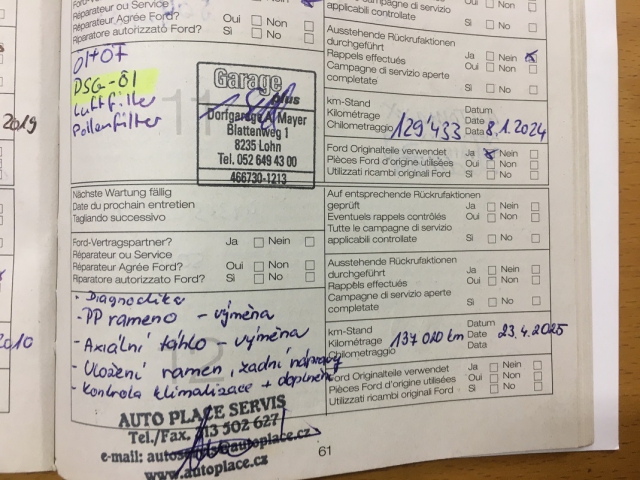 Réparateur ou Service
Réparateur Agrée Ford? Oui Non
Riparatore autorizzato Ford? Sì No
applicabili controllate
Ausstehende Rückrufaktionen
durchgeführt Ja Nein
Rappels effectués Oui Non
Campagne di servizio aperte
completate Sì No
Öl+ÖF
DSG-Öl
Luftfilter
Pollenfilter
Garage
plus
Dorfgarage A. Mayer
Blattenweg 1
8235 Lohn
Tel. 052 649 43 00
466730-1213
km-Stand Datum
Kilométrage Date
Chilometraggio 129'433 Data 8.1.2024
Ford Originalteile verwendet Ja Nein
Pièces Ford d'origine utilisées Oui Non
Utilizzati ricambi originali Ford Sì No
2019
Nächste Wartung fällig
Date du prochain entretien
Tagliando successivo
Auf entsprechende Rückrufaktionen
geprüft Ja Nein
Eventuels rappels contrôlés Oui Non
Tutte le campagne di servizio
applicabili controllate Sì No
Ford-Vertragspartner? Ja Nein
Réparateur ou Service
Réparateur Agrée Ford? Oui Non
Riparatore autorizzato Ford? Sì No
Ausstehende Rückrufaktionen
durchgeführt Ja Nein
Rappels effectués Oui Non
Campagne di servizio aperte
completate Sì No
- Diagnostika
- PP rameno - výměna
- Axiální táhlo - výměna
- Uložení ramen, zadní nápravy
- Kontrola klimatizace + doplnění
km-Stand Datum
Kilométrage 137 020 km Date 23.4.2025
Chilometraggio Data
Ford Originalteile verwendet Ja Nein
Pièces Ford d'origine utilisées Oui Non
Utilizzati ricambi originali Ford Sì No
2010
AUTO PLACE SERVIS
Tel./Fax. 13 502 627
e-mail:
www.autoplace.cz
61